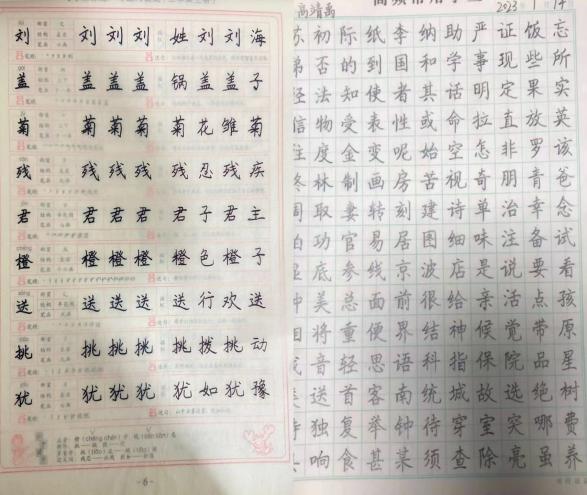 刘 刘 刘 刘 姓 刘 刘 海
盖 盖 盖 盖 锅 盖 盖 子
菊 菊 菊 菊 菊 花 雏 菊
残 残 残 残 残 忍 残 疾
君 君 君 君 君 子 君 主
chéng
橙 橙 橙 橙 橙 色 橙 子
送 送 送 送 送 行 欢 送
挑 挑 挑 挑 挑 拨 挑 动
犹 犹 犹 犹 犹 如 犹 豫
-6-
2023 1 14
苏 初 际 纸 李 纳 助 严 证 饭 忘
弟 否 的 到 国 和 学 事 现 些 所
经 法 知 使 者 其 话 明 定 果 实
信 物 受 表 性 或 命 拉 直 放 英
住 度 金 变 呢 始 空 怎 非 罗 该
冬 林 制 画 房 苦 视 奇 朋 青 爸
周 取 妻 转 刻 建 诗 单 治 幸 念
功 官 易 居 图 细 味 注 备 试
底 参 线 京 波 店 是 说 要 看
美 总 面 前 很 给 亲 活 点 孩
将 重 便 界 结 神 候 觉 带 原
音 轻 思 语 科 指 保 院 品 星
送 首 客 南 统 城 故 选 绝 树
独 复 举 钟 待 穿 室 突 哪 费
响 食 甚 某 须 查 除 亮 虽 养